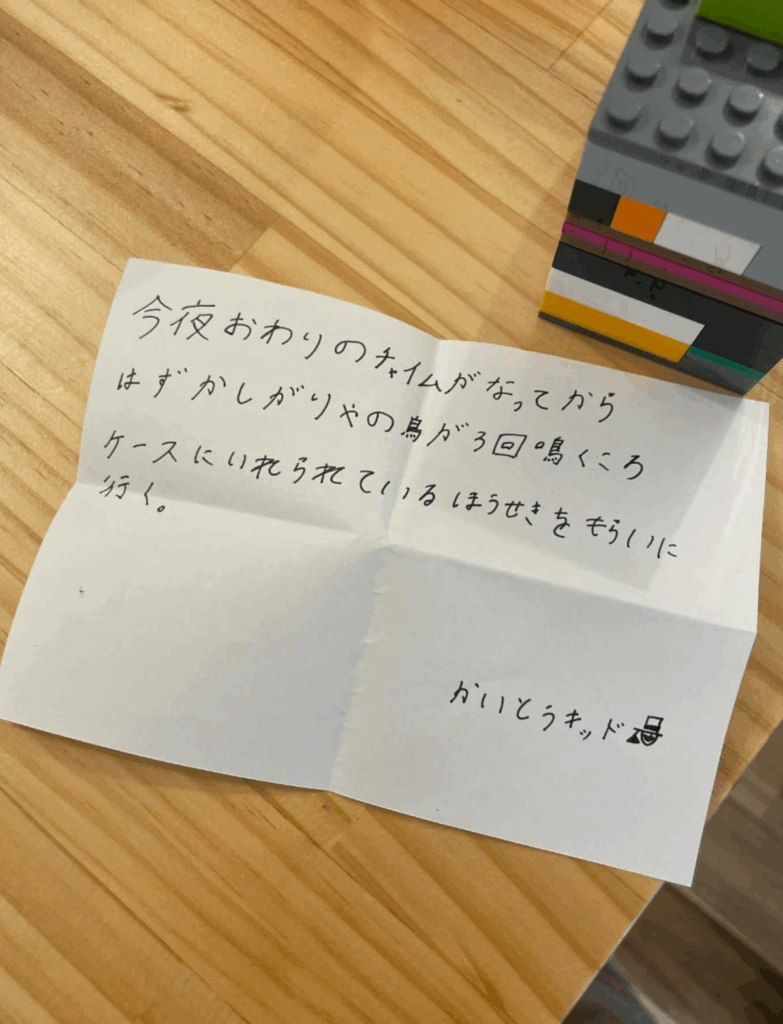 今夜おわりのチャイムがなってから
はずかしがりやの鳥が3回鳴くころ
ケースにいれられているほうせきをもらいに
行く。
かいとうキッド